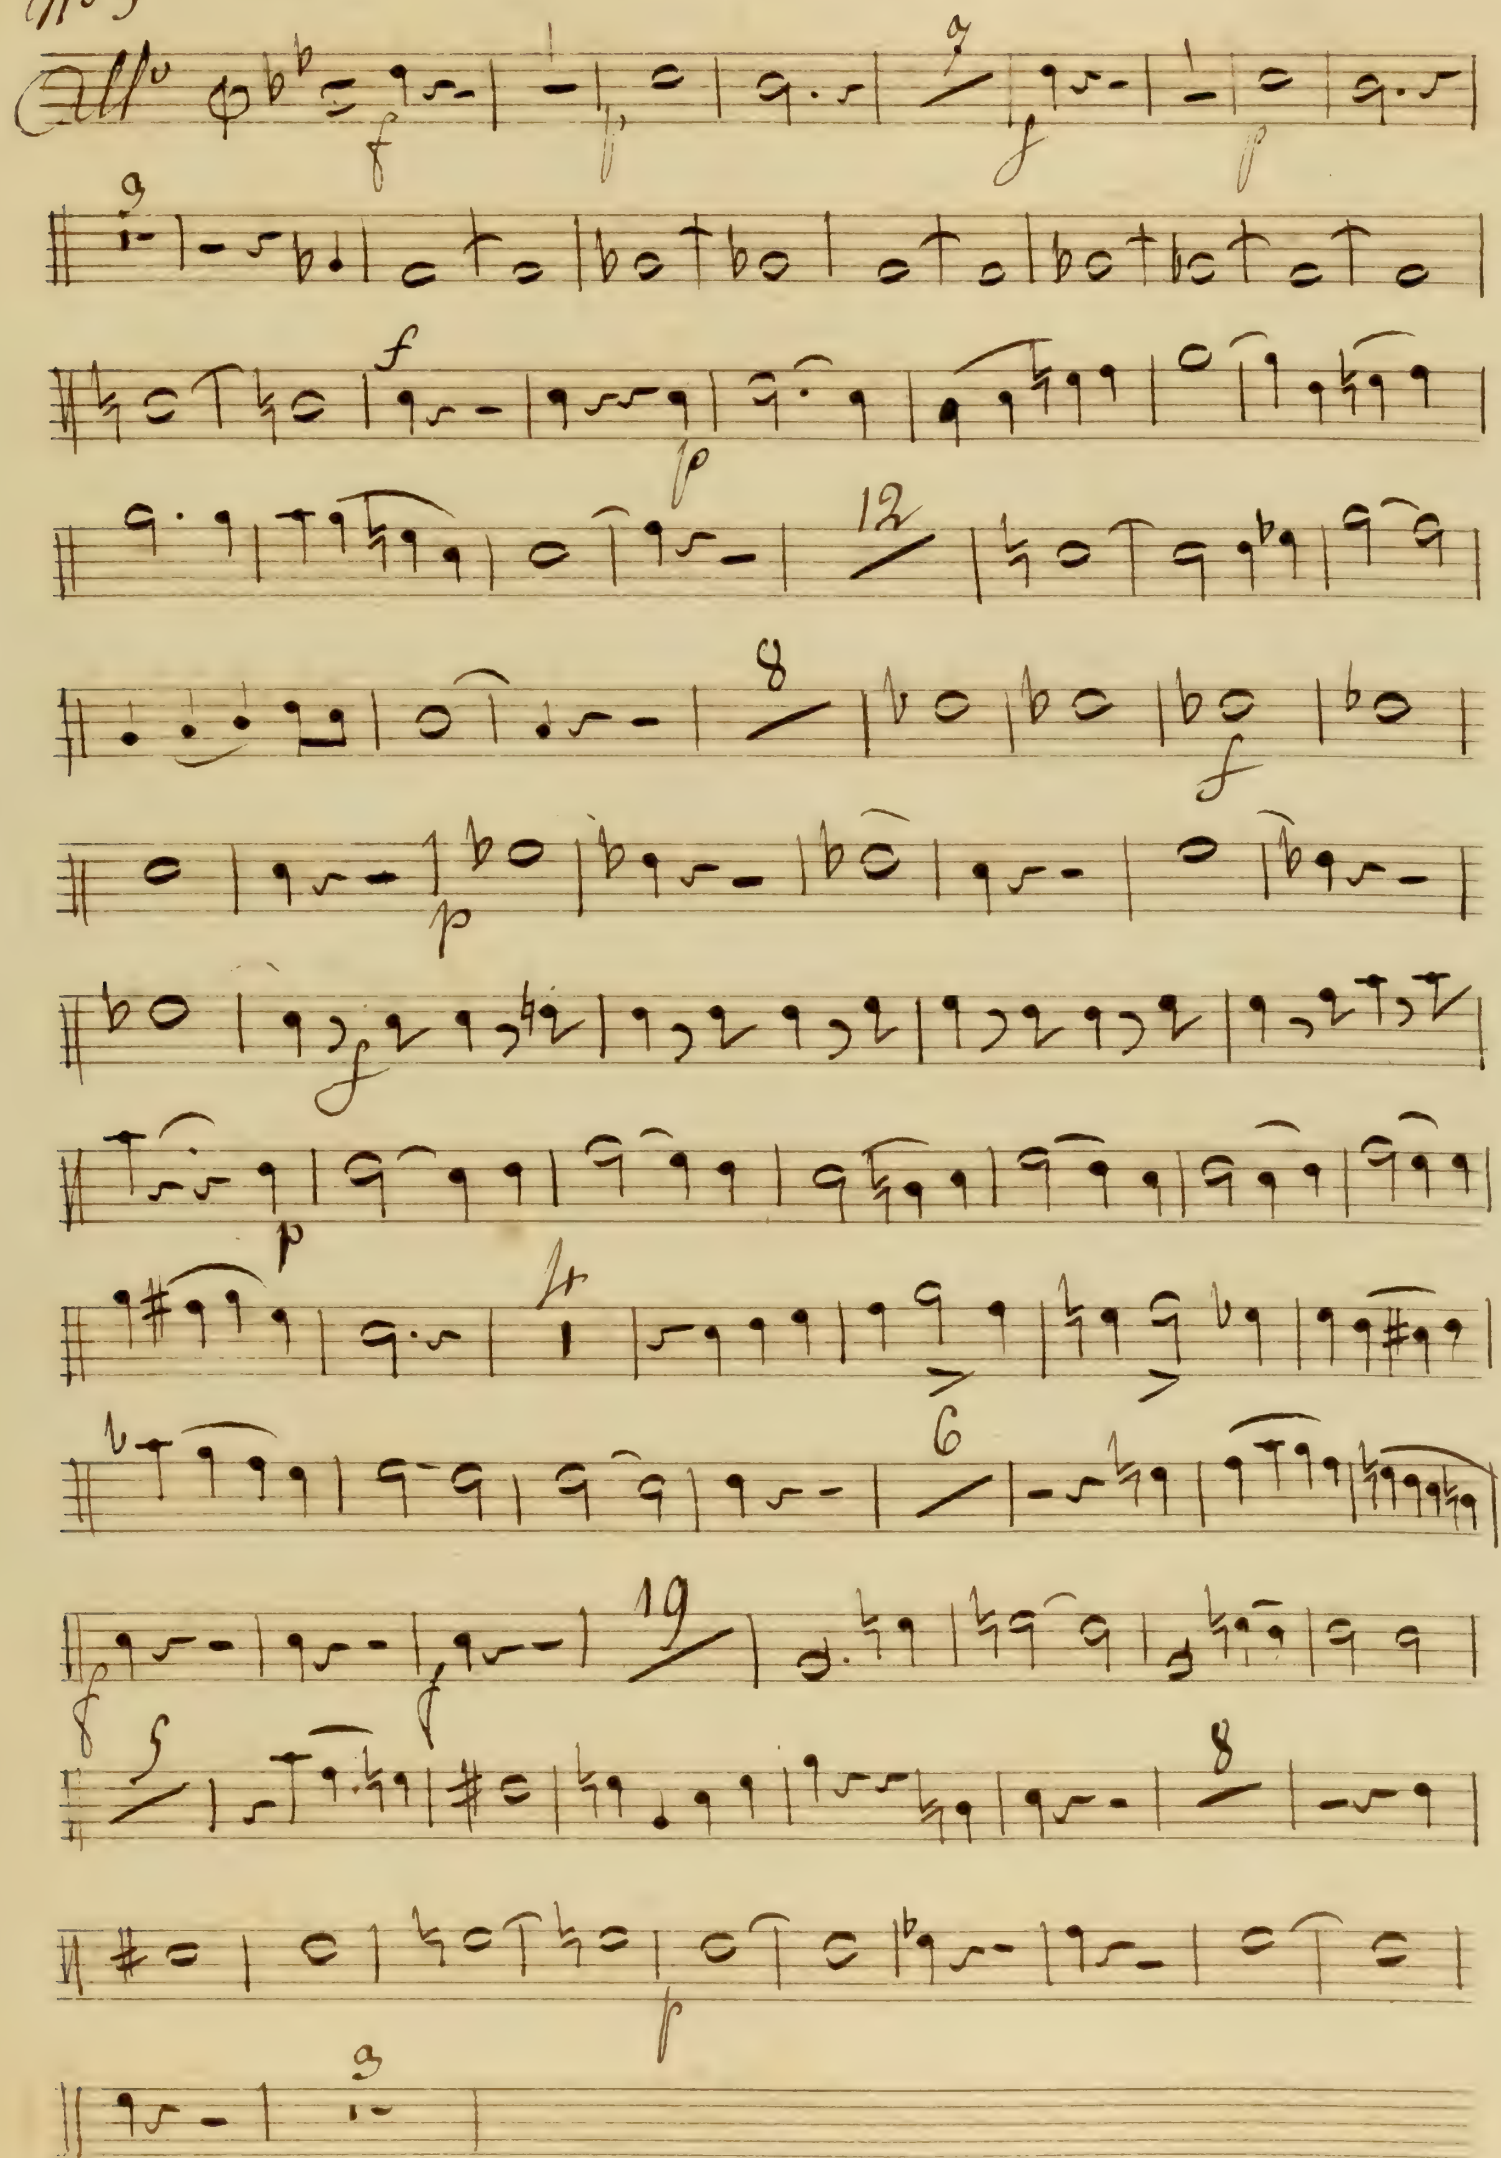 No 3
Allo
7
f p f p
3
f
p
12
8
f
p
f
p
4
6
19
f f
5
8
p
3